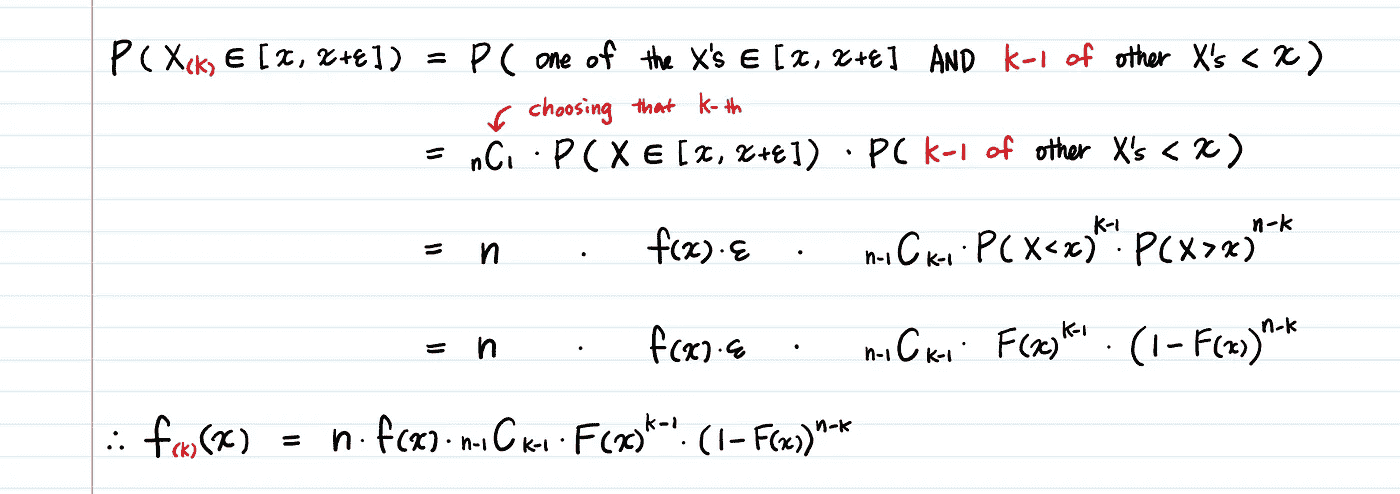 P( X₍ₖ₎ ∈ [x, x+ε] ) = P( one of the X's ∈ [x, x+ε] AND k-1 of other X's < x )
choosing that k-th
= ₙC₁ · P( X ∈ [x, x+ε] ) · P( k-1 of other X's < x )
= n · f(x)·ε · ₙ₋₁Cₖ₋₁ · P( X<x )ᵏ⁻¹ · P( X>x )ⁿ⁻ᵏ
= n · f(x)·ε · ₙ₋₁Cₖ₋₁ · F(x)ᵏ⁻¹ · (1-F(x))ⁿ⁻ᵏ
∴ f₍ₖ₎(x) = n · f(x) · ₙ₋₁Cₖ₋₁ · F(x)ᵏ⁻¹ · (1-F(x))ⁿ⁻ᵏ